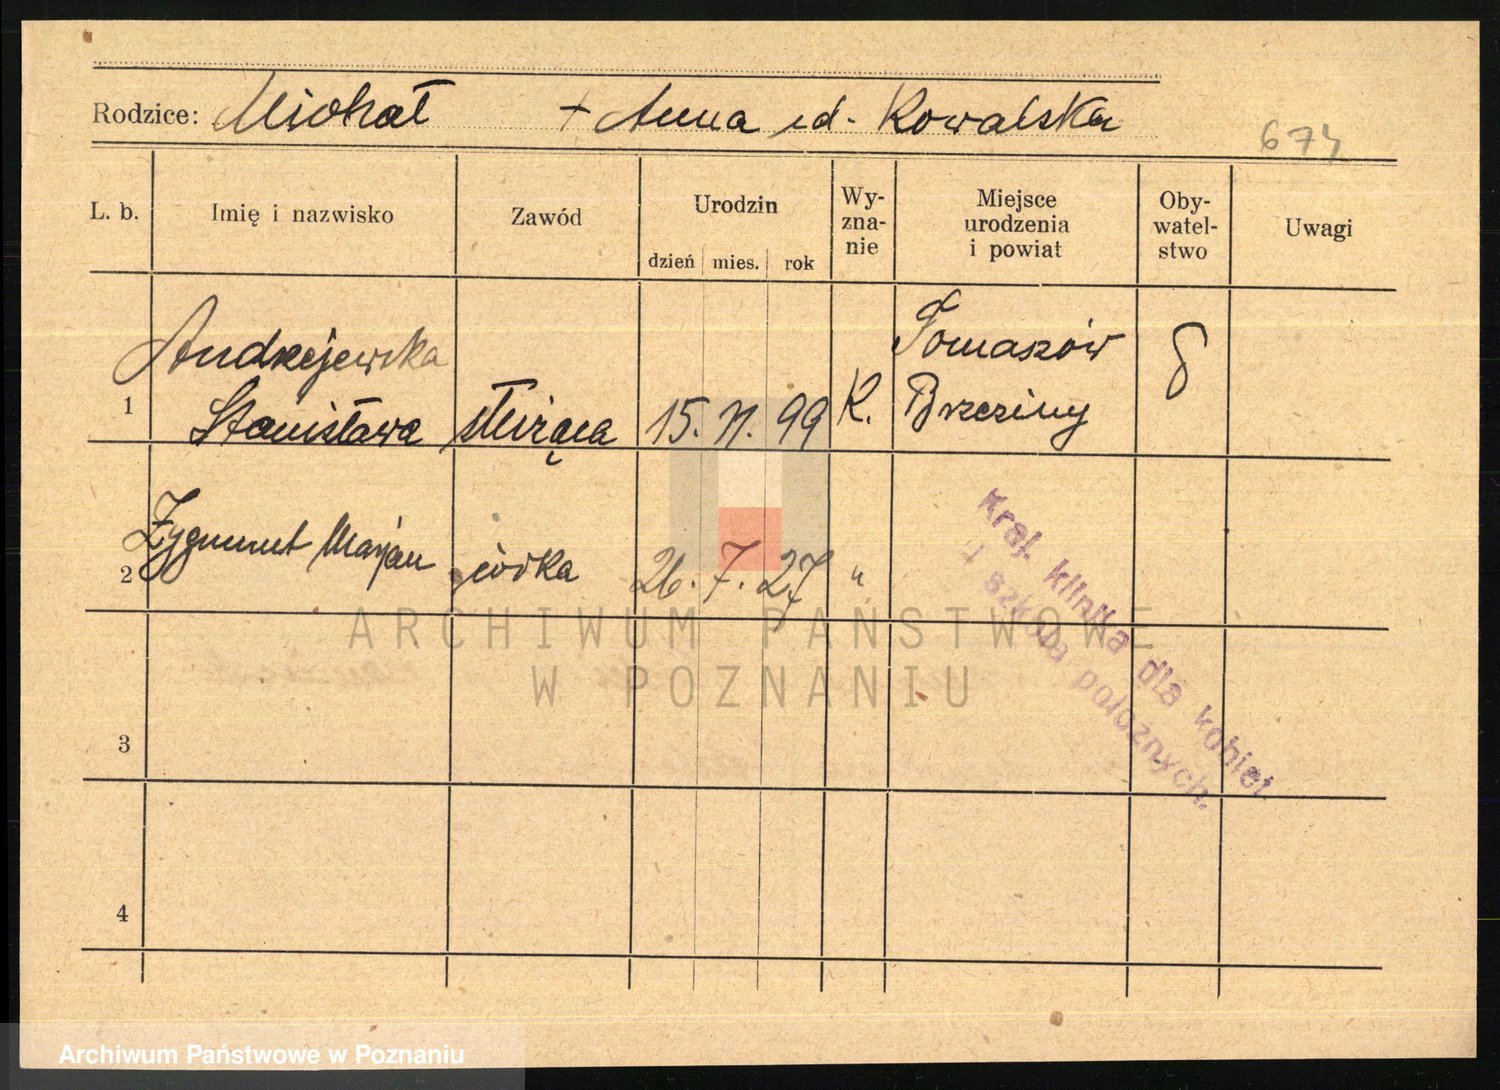 Rodzice: Michał + Anna ud. Kowalska
674
L. b. Imię i nazwisko Zawód Urodzin Wy-zna-nie Miejsce urodzenia i powiat Oby-watel-stwo Uwagi
dzień mies. rok
Andrzejewska Tomaszów
1 Stanisława służąca 15. 99 K. Brzeziny
2 Zygmunt Marjan 26. 7. 27 "
Kraj. klinika dla kobiet
i szkoła położnych.
3
4
ARCHIWUM PAŃSTWOWE
W POZNANIU
Archiwum Państwowe w Poznaniu